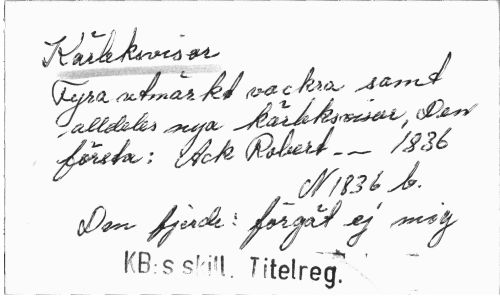 Kärleksvisor
Fyra utmärkt vackra samt
alldeles nya kärleksvisor, Den
första: Ack Robert -- 1836
N 1836 b.
Den fjerde: förgät ej mig
KB:s skill. Titelreg.